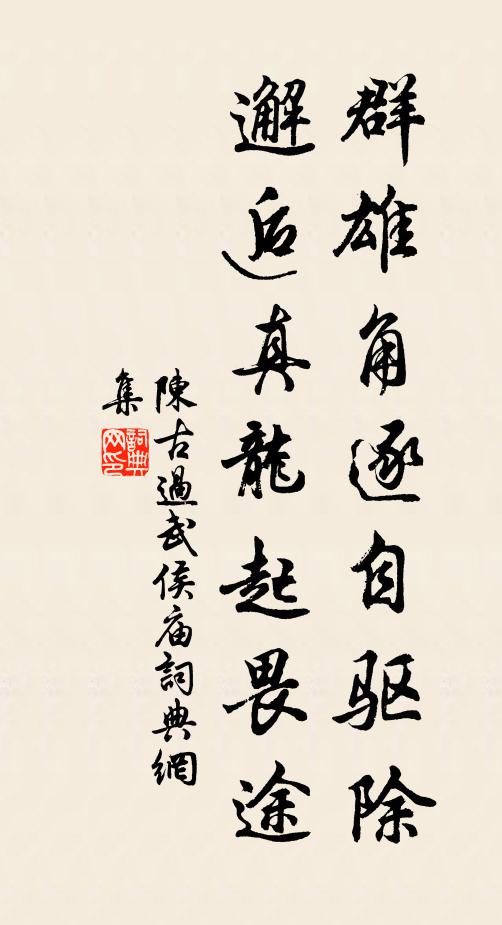 群雄角逐自驱除
邂逅真龍起畏途
陳古過武侯庙詞典網
集
詞典
网印